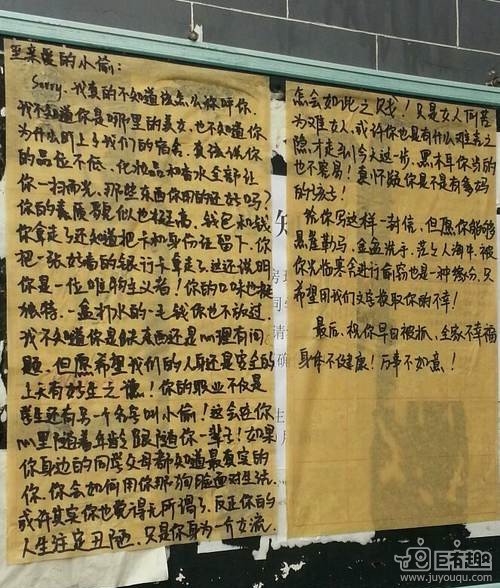 至亲爱的小偷:
Sorry.我真的不知道该怎么称呼你.
我不知道你是哪里的美女,也不知道你
为什么盯上了我们的宿舍.真该说你
的品位不低、化妆品和香水全部让
你一扫而光,那些东西你用的还好吗?
你的素质貌似也挺高,钱包和钱
你拿走了还知道把卡和身份证留下.你
把一张好看的银行卡拿走了.这还说明
你是一位唯物主义者!你的口味也挺
独特.一盒打水的一毛钱你也不放过
我不知道你是缺东西还是心理有问
题.但愿希望我们的人身还是安全的
上天有好生之德!你的职业不仅是
学生还有另一个名号叫小偷!这会连你
心里随着年龄跟随你一辈子!如果
你身边的同学父母都知道最真实的
你.你会如何用你那狗脸面对生活.
或许其实你也觉得无所谓了.反正你的
人生注定丑陋.只是你身为一介女流.
怎会如此之贱!只是女人何苦
为难女人,或许你也是有什么难言之
隐.才走到今天这一步,黑木耳你妈的
也不容易!真怀疑你是不是有爹妈
的孩子!
给你写这样一封信,但愿你能够
悬崖勒马,金盆洗手.茫茫人海中.被
你光临寒舍进行偷窃也是一种缘分,只
希望用我们文字换取你的不幸!
最后,祝你早日被抓、全家不幸福
身体不健康!万事不如意!
知
房
同
请
确
巨有趣
www.juyouqu.com